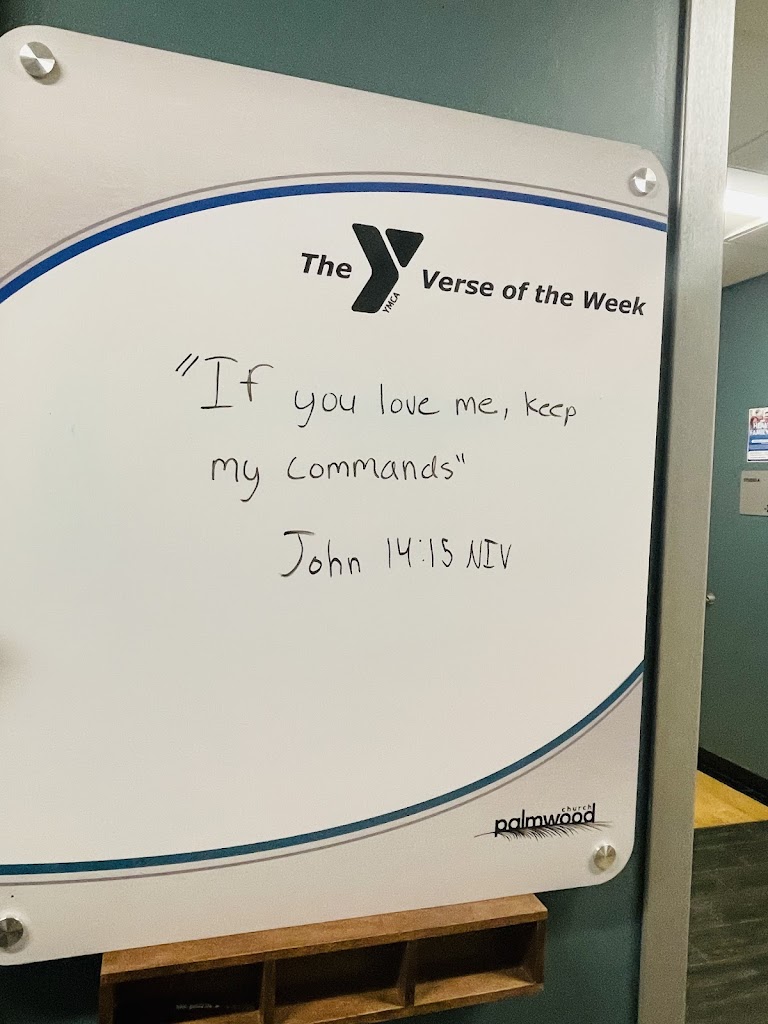 The Y Verse of the Week
YMCA
"If you love me, keep
my commands"
John 14:15 NIV
church
palmwood